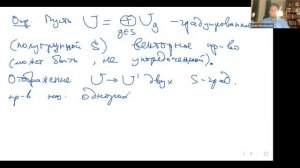 Опр. Пусть U = ⊕ U_g - градуированное
g∈S
(полугруппой S) векторное пр-во
(может быть, не упорядоченной).
Отображение U → U' двух S-град.
пр-в наз. однород